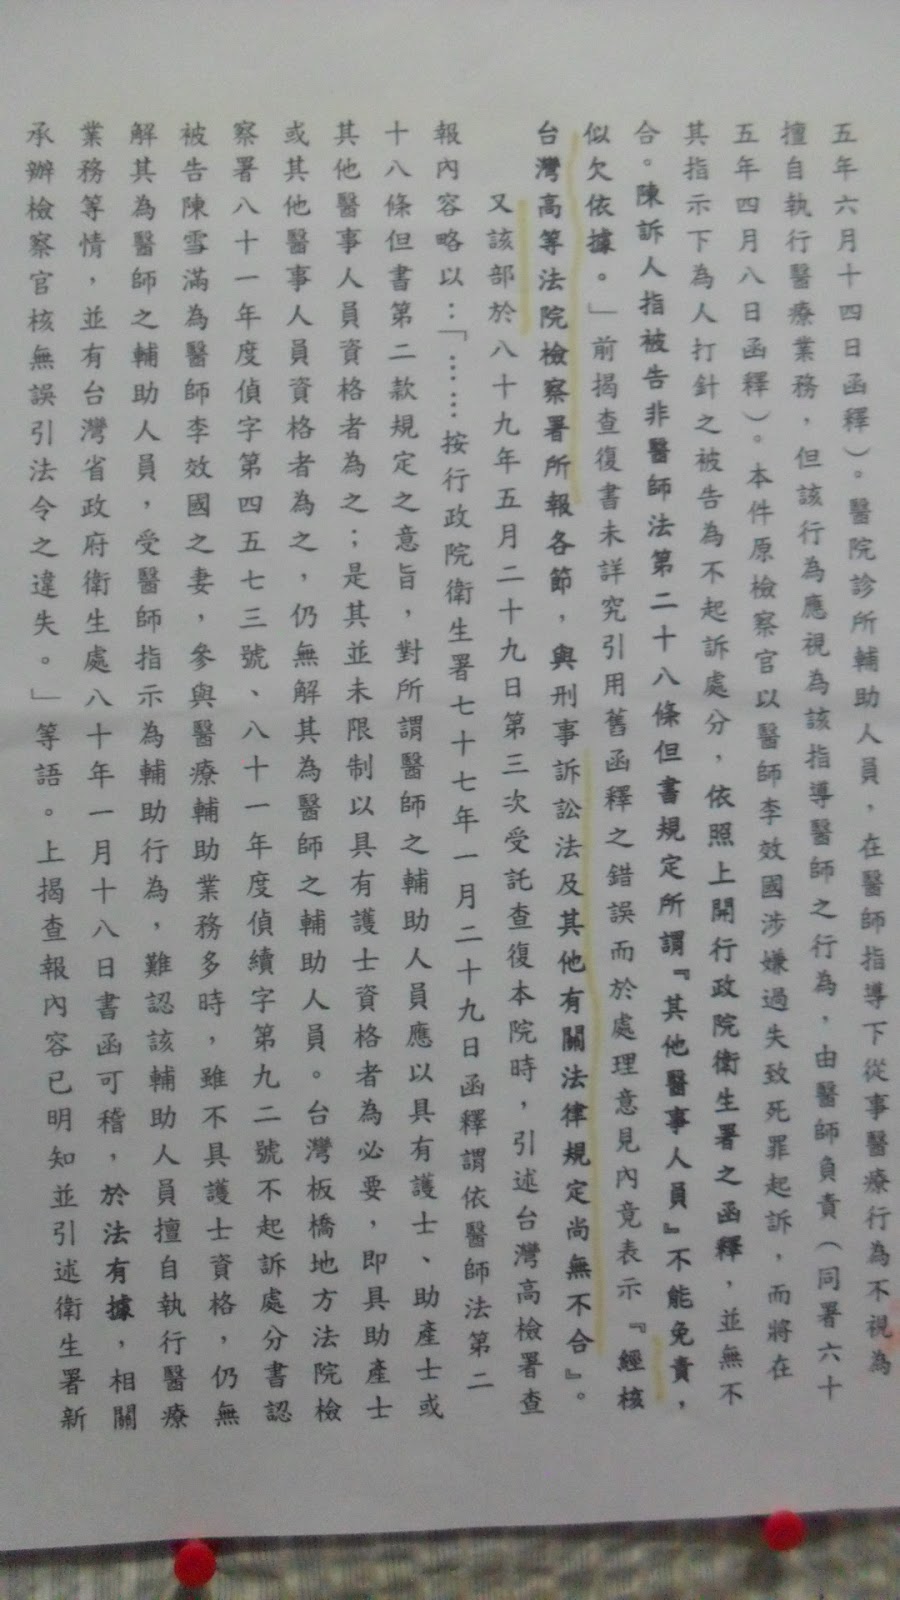 五年六月十四日函釋)。醫院診所輔助人員,在醫師指導下從事醫療行為不視為
擅自執行醫療業務,但該行為應視為該指導醫師之行為,由醫師負責(同署六十
五年四月八日函釋)。本件原檢察官以醫師李效國涉嫌過失致死罪起訴,而將在
其指示下為人打針之被告為不起訴處分,依照上開行政院衛生署之函釋,並無不
合。陳訴人指被告非醫師法第二十八條但書規定所謂『其他醫事人員』不能免責,
似欠依據。」前揭查復書未詳究引用舊函釋之錯誤而於處理意見內竟表示『經核
台灣高等法院檢察署所報各節,與刑事訴訟法及其他有關法律規定尚無不合』。
又該部於八十九年五月二十九日第三次受託查復本院時,引述台灣高檢署查
報內容略以:「……按行政院衛生署七十七年一月二十九日函釋謂依醫師法第二
十八條但書第二款規定之意旨,對所謂醫師之輔助人員應以具有護士、助產士或
其他醫事人員資格者為之;是其並未限制以具有護士資格者為必要,即具助產士
或其他醫事人員資格者為之,仍無解其為醫師之輔助人員。台灣板橋地方法院檢
察署八十一年度偵字第四五七三號、八十一年度偵續字第九二號不起訴處分書認
被告陳雪滿為醫師李效國之妻,參與醫療輔助業務多時,雖不具護士資格,仍無
解其為醫師之輔助人員,受醫師指示為輔助行為,難認該輔助人員擅自執行醫療
業務等情,並有台灣省政府衛生處八十年一月十八日書函可稽,於法有據,相關
承辦檢察官核無誤引法令之違失。」等語。上揭查報內容已明知並引述衛生署新